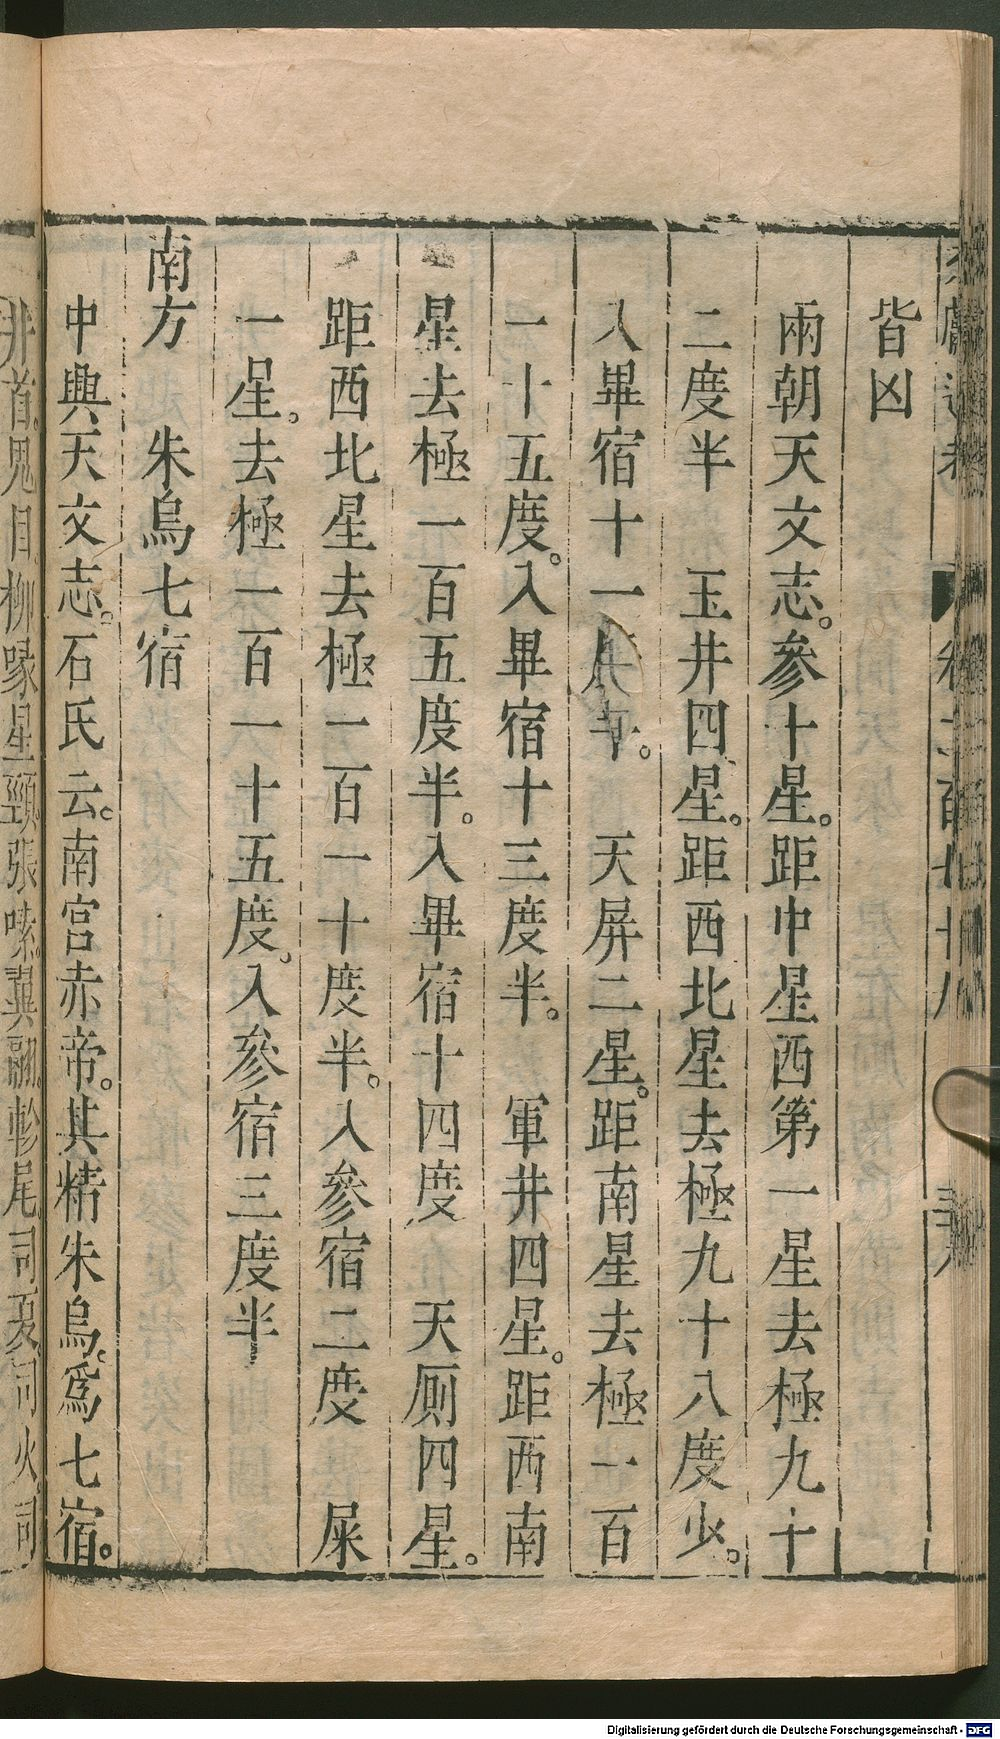 皆凶
兩朝天文志。參十星。距中星西第一星去極九十
二度半　玉井四星。距西北星去極九十八度少。
入畢宿十一半。　天屏二星。距南星去極一百
一十五度。入畢宿十三度半。　軍井四星。距西南
星去極一百五度半。入畢宿十四度　天厠四星。
距西北星去極一百一十度半。入參宿二度　屎
一星。去極一百一十五度。入參宿三度半
南方　朱鳥七宿
中興天文志。石氏云。南宮赤帝。其精朱鳥。爲七宿。
井首。鬼目。柳喙。星頸。張嗉。翼翮。軫尾。司夏。司火。司
Digitalisierung gefördert durch die Deutsche Forschungsgemeinschaft - DFG